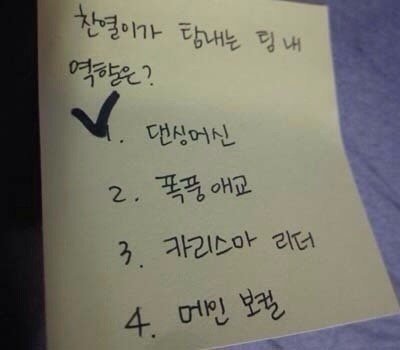 찬열이가 탐내는 팀 내
역할은?
✓1. 댄싱머신
2. 폭풍애교
3. 카리스마 리더
4. 메인 보컬